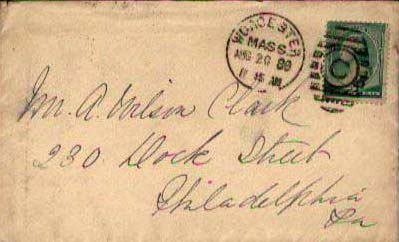 WORCESTER
MASS
AUG 20 88
11 15 AM
CENTS
Mr. A. Wilson Clark
230 Dock Street
Philadelphia
Pa